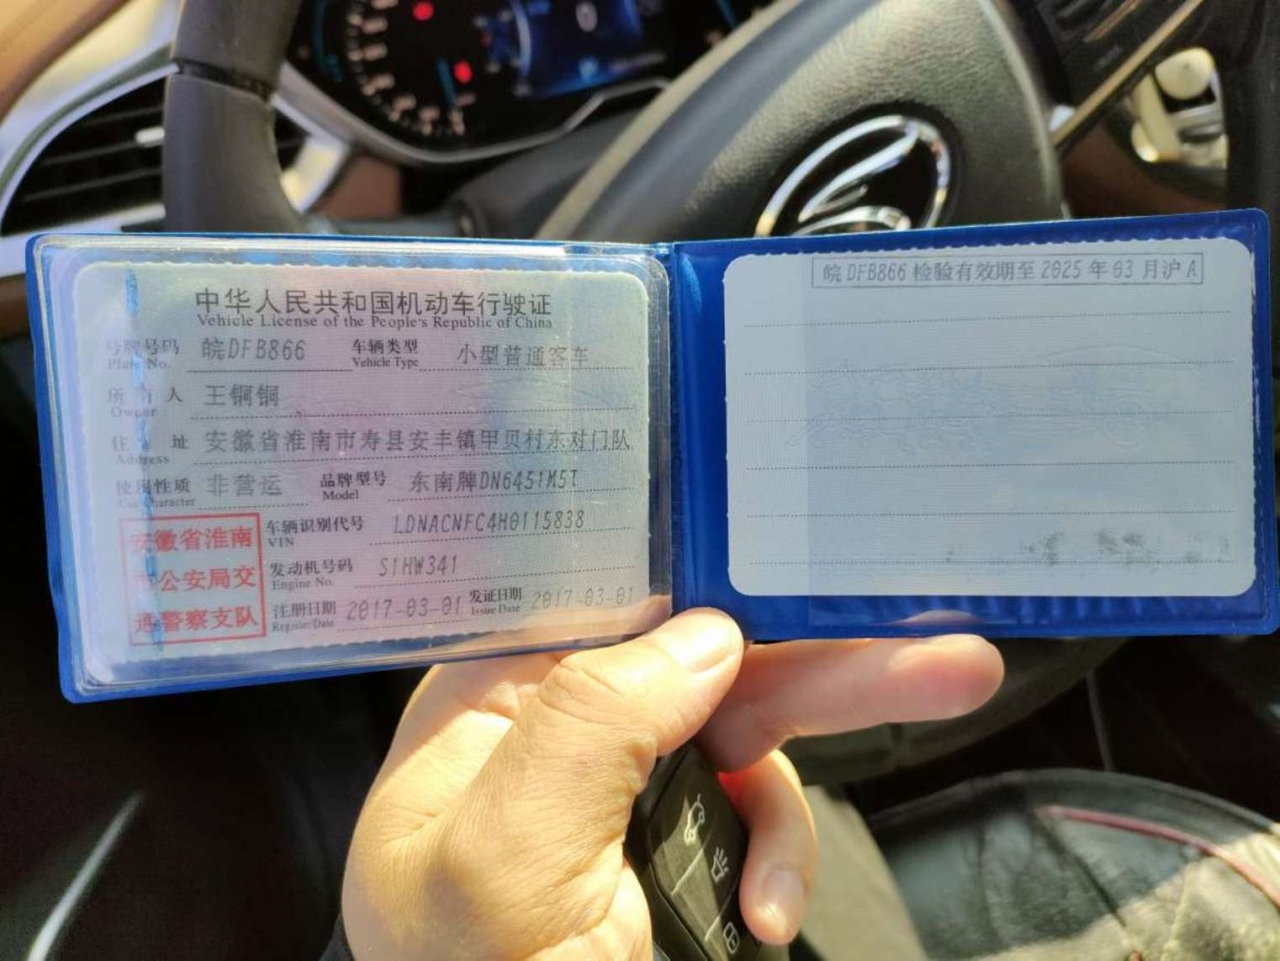 中华人民共和国机动车行驶证
Vehicle License of the People's Republic of China
号牌号码 皖DFB866 车辆类型 小型普通客车
Plate No. Vehicle Type
所有人 王锕锕
Owner
住址 安徽省淮南市寿县安丰镇甲贝村东对门队
Address
使用性质 非营运 品牌型号 东南牌DN6451M5T
Use Character Model
安徽省淮南
市公安局交
通警察支队
车辆识别代号 LDNACNFC4H0115838
VIN
发动机号码 S1HW341
Engine No.
注册日期 2017-03-01 发证日期 2017-03-01
Register Date Issue Date
皖DFB866检验有效期至2025年03月沪A